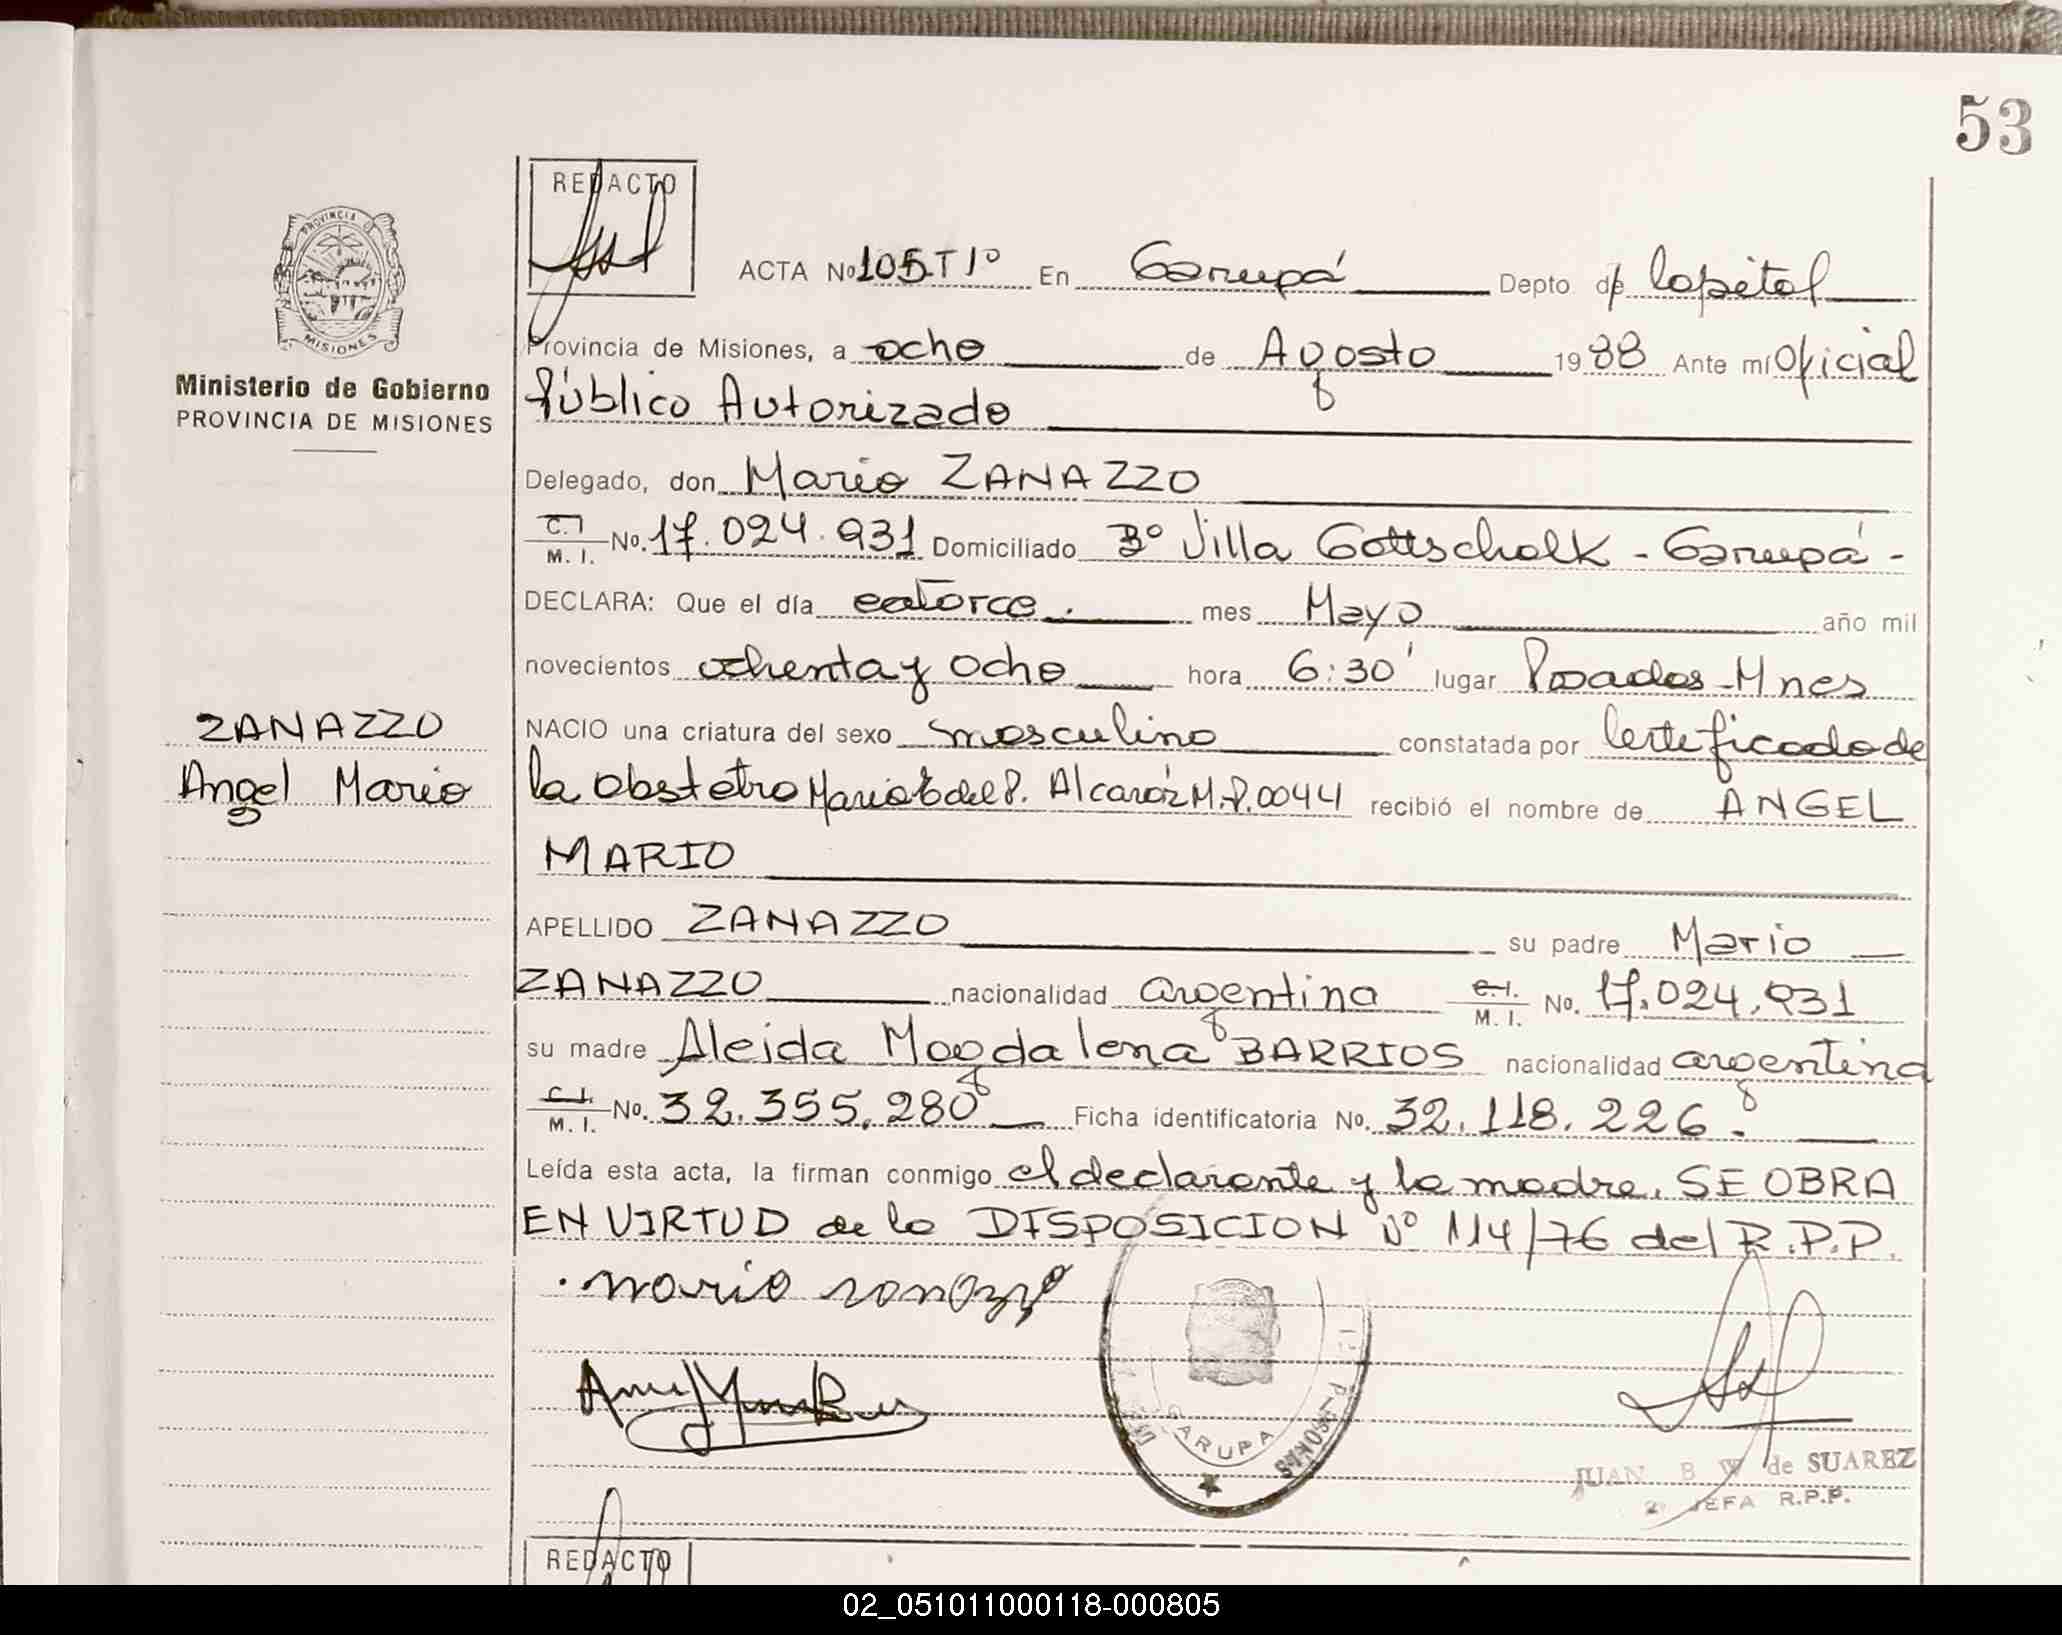 53
REDACTO
ACTA Nº 105 T 1º En Garupá Depto de Capital
Provincia de Misiones, a ocho de Agosto 1988 Ante mí Oficial
Público Autorizado
PROVINCIA
MISIONES
Ministerio de Gobierno
PROVINCIA DE MISIONES
Delegado, don Mario ZANAZZO
C.I. M. I. No. 17.024.931 Domiciliado Bº Villa Gottschalk - Garupá -
DECLARA: Que el día catorce. mes Mayo año mil
novecientos ochenta y ocho hora 6:30' lugar Posadas - Mnes
ZANAZZO
Angel Mario
NACIO una criatura del sexo masculino constatada por Certificado de
la obstetra Maria del P. Alcaráz M.P. 0044 recibió el nombre de ANGEL
MARIO
APELLIDO ZANAZZO su padre Mario
ZANAZZO nacionalidad argentina C.I. M. I. No. 17.024.931
su madre Aleida Magdalena BARRIOS nacionalidad argentina
C.I. M. I. No. 32.355.280 Ficha identificatoria No. 32.118.226.
Leída esta acta, la firman conmigo el declarante y la madre. SE OBRA
EN VIRTUD de la DISPOSICION Nº 114/76 del R.P.P.
mario zanazzo
GARUPA
MISIONES
JUAN B W de SUAREZ
JEFA R.P.P.
REDACTO
02_051011000118-000805